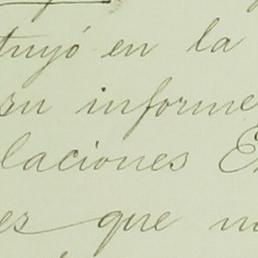 tuyó en la
su informe
laciones E
es que n